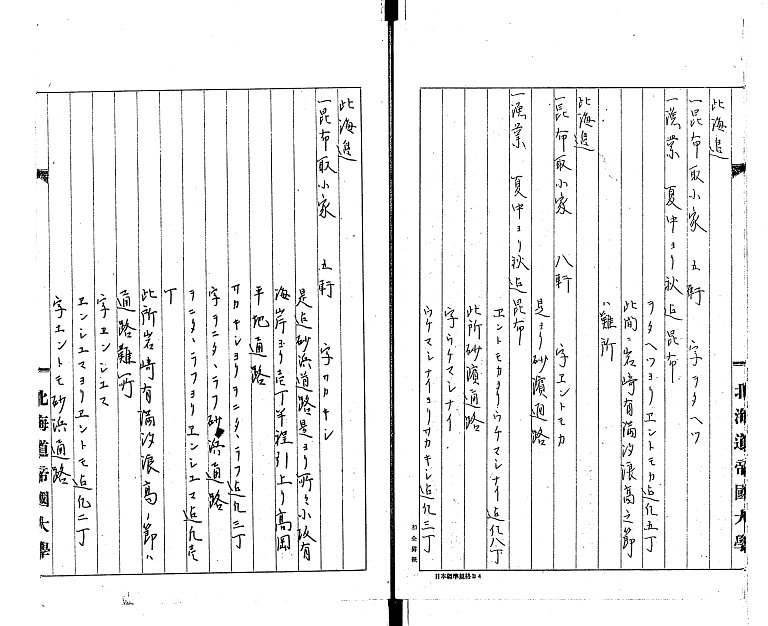 此海邊
一昆布取小家 五軒 字ヲタヘツ
一漁業 夏中ヨリ秋迠昆布
ヲタヘツヨリエントモカ迠凡五丁
此間ニ岩崎有滿汐浪高之節
ハ難所
此海邊
一昆布取小家 八軒 字エントモカ
是ヨリ砂濱通路
一漁業 夏中ヨリ秋迠昆布
エントモカヨリウケマシナイ迠凡八丁
此所砂濱通路
字ウケマシナイ
ウケマシナイヨリサカキシ迠凡三丁
北海道帝國大學
日本標準規格B4
此海邊
一昆布取小家 五軒 字サカキシ
是迠砂浜道路是ヨリ所々小坂有
海岸ヨリ壱丁半程引上リ高岡
平地通路
サカキシヨリヲニタ、ラフ迠凡三丁
字ヲニタ、ラフ砂浜通路
ヲニタ、ラフヨリエンシユマ迠凡壱
丁
此所岩崎有滿汐浪高ノ節ハ
通路難所
字エンシユマ
エンシユマヨリエントモ迠凡二丁
字エントモ砂浜通路
北海道帝國大學